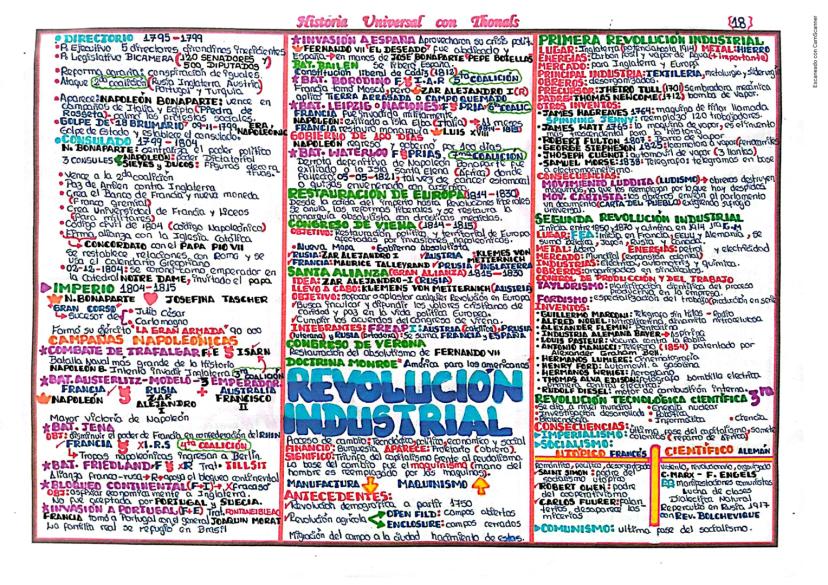 Historia Universal con Thonals
[18]
Escaneado con CamScanner
• DIRECTORIO 1795-1799
• P. Ejecutivo 5 directores
• P. Legislativo BICAMERA (120 SENADORES y
500 DIPUTADOS)
• Reforma agraria: conspiración de iguales.
• Ataque 2da coalición (Rusia Inglaterra Austria
Portugal y Turquía)
• Aparece: NAPOLEÓN BONAPARTE: vence en
campañas de Italia y Egipto (Piedra de
Rosseta).
• GOLPE DE 18 BRUMARIO 09-11-1799 ERA NAPOLEÓNICA
Golpe de Estado y establece el consulado
• CONSULADO 1799-1804
N. BONAPARTE: centraliza el poder político
3 CONSULES NAPOLEÓN: poder Dictatorial
SIEYES y DUCOS: figuras decorativas
• Vence a la 2da coalición
• Paz de Amiens contra Inglaterra.
• Crea el Banco de Francia y nueva moneda
(Franco germinal)
• Crea Universidad de Francia y liceos
(Para militares)
• Código civil de 1804 (Código Napoleónico)
• Firma alianza con la Iglesia Católica
CONCORDATO con el PAPA PIO VII
se restablece relaciones con Roma y se
usa el calendario Gregoriano
• 02-12-1804: se coronó como emperador en
la catedral NOTRE DAME, invitado el papa.
IMPERIO 1804-1815
N. BONAPARTE JOSEFINA TASCHER
GRAN CORSO Julio César
Sucesor de Carlomagno
Formó su ejército "LA GRAN ARMADA" 90 000
CAMPAÑAS NAPOLEÓNICAS
COMBATE DE TRAFALGAR F-E
Batalla naval más grande de la historia
NAPOLEÓN B. Intentó invadir Inglaterra 3ra coalición
BAT. AUSTERLITZ-MODELO-3 EMPERADORES
FRANCIA RUSIA AUSTRIA
NAPOLEON ZAR ALEJANDRO I FRANCISCO II
Mayor victoria de Napoleón
BAT. JENA
OBJ: disminuir el poder de Francia en confederación del RHIN
FRANCIA (4TO COALICIÓN)
Tropas napoleónicas ingresan a Berlín.
BAT. FRIEDLAND: F R Trat. TILLSIT
Alianza franco-rusa
BLOQUEO CONTINENTAL (F-I) Fracasó
OBJ: asfixiar económicamente a Inglaterra.
No fue aceptado por PORTUGAL y SUECIA.
INVASIÓN A PORTUGAL (F+E) Trat. FONTAINEBLEAU
FRANCIA tomó a Portugal con el general JOAQUIN MORAT
La familia real se refugio en Brasil
INVASIÓN A ESPAÑA Aprovecharon su crisis polít.
FERNANDO VII "EL DESEADO" fue abdicado y
España en manos de JOSE BONAPARTE "PEPE BOTELLAS"
BAT. BAILEN Se liberó España.
Constitución liberal de Cádiz (1812)
BAT. BORODINO F R 5to COALICIÓN
Francia tomó Moscú, pero ZAR ALEJANDRO I (R)
aplicó TIERRA ARRASADA O CAMPO QUEMADO
BAT. LEIPZIG o NACIONES 6ta coalic.
FRANCIA fue invadida militarmente
NAPOLEÓN: exiliado a isla Elba (Italia) 11 meses
FRANCIA restauró monarquía LUIS XVIII 1814-1815
GOBIERNO DE 100 DÍAS
NAPOLEÓN regresó y gobernó por 100 días
BAT. WATERLOO F 7ma COALICIÓN
Derrota definitiva de Napoleón Bonaparte
exiliado a la isla Santa Elena (África) donde
falleció 05-05-1821, tal vez de cáncer estomacal
o quizás envenenado con arsénico
RESTAURACIÓN DE EUROPA (1814-1830)
Desde la caída del imperio hasta revoluciones liberales
CONGRESO DE VIENA (1814-1815)
OBJETIVO: Restauración política y territorial de Europa
afectadas por invasiones napoleónicas
• Nuevo Mapa • Gobierno Absolutista
RUSIA: ZAR ALEJANDRO I AUSTRIA: KLEMES VON METTERNICH
FRANCIA: MAURICE TALLEYRAND PRUSIA INGLATERRA
SANTA ALIANZA (GRAN ALIANZA) 1815-1830
IDEA: ZAR ALEJANDRO I (RUSIA)
LLEVÓ A CABO: KLEMENS VON METTERNICH (AUSTRIA)
OBJETIVO: sofocar o aplastar cualquier Revolución en Europa
Busca inculcar y difundir los valores cristianos de
caridad y paz en la vida política europea.
Cumplir los acuerdos del congreso de Viena.
INTEGRANTES: AUSTRIA (católica), PRUSIA
(luterana) y RUSIA (ortodoxa). Se suma FRANCIA y ESPAÑA
CONGRESO DE VERONA
Restauración del absolutismo de FERNANDO VII
DOCTRINA MONROE "América para los americanos"
REVOLUCIÓN
INDUSTRIAL
Proceso de cambio: Tecnológico, político, económico y social
FINANCIÓ: Burguesía APARECE: Proletario (obrero).
SIGNIFICÓ: Triunfo del capitalismo frente al feudalismo
La base del cambio fue el maquinismo (mano del
hombre es reemplazado por las máquinas).
MANUFACTURA MAQUINISMO
ANTECEDENTES:
Revolución demográfica a partir 1750
Revolución agrícola OPEN FILD: campos abiertos
ENCLOSURE: campos cerrados
Migración del campo a la ciudad
PRIMERA REVOLUCIÓN INDUSTRIAL
LUGAR: Inglaterra (potencia hasta 1914) METAL: HIERRO
ENERGÍAS: Carbón y vapor de agua (+ importante)
MERCADO: para Inglaterra y Europa
PRINCIPAL INDUSTRIA: TEXTILERIA, metalurgia, siderurgia
OBREROS: desorganizados.
PRECURSOR: JHERO TULL (1701) sembradora mecánica
PADRE: THOMAS NEWCOME (1712): bomba de vapor
OTROS INVENTOS:
• JAMES HAGREAVES 1764: maquina de hilar llamada
SPINNING JENNY: reemplazó 120 trabajadores.
• JAMES WATT 1765: la maquina de vapor, es el invento
más trascendental para la historia.
• ROBERT FULTON 1807: Barco de vapor
• GEORGE STEPHENSON 1825: locomotora a vapor (ferrocarriles)
• JHOSEPH CUENOT: automovil de vapor (3 llantas).
• SAMUEL MORSE: 1838: Telégrafos: telegramas en base
a electromagnetismo.
CONSECUENCIAS:
MOVIMIENTO LUDDITA (LUDISMO) obreros destruyen
máquinas, ya que los reemplazan por lo que hay despidos.
MOV. CARTISTA: los obreros envían al parlamento
un documento (CARTA DEL PUEBLO) exigiendo sufragio
universal.
SEGUNDA REVOLUCIÓN INDUSTRIAL
Inicia entre 1850 y 1870 y culmina en 1914 1era G.M
LUGAR: Inició en Francia, EEUU y Alemania, se
sumó Bélgica, Japón, Rusia y Canadá.
METAL: Acero ENERGÍAS: petróleo y electricidad
MERCADO: Mundial (expansión capital)
INDUSTRIAS: Eléctrica, automotriz y química.
OBREROS: organizados en sindicatos.
CONTROL DE PRODUCCIÓN Y DEL TRABAJO
TAYLORISMO: planificación científica del proceso
productivo en la empresa.
FORDISMO: especialización del trabajo (producción en serie)
INVENTOS:
• GUILLERMO MARCONI: Telégrafo sin hilos - Radio
• ALFRED NOBEL: Dinamita
• ALEXANDER FLEMIN: Penicilina
• INDUSTRIA ALEMANA BAYER: Aspirina
• LOUIS PASTEUR: Vacuna contra la Rabia
• ANTONIO MANUCCI: Telefono (1854) patentado por
Alexander Graham Bell
• HERMANOS LUMIERE: cinematografía
• HENRY FORD: automovil a gasolina
• HERMANOS WRIGHT: Aeroplano
• THOMAS ALVA EDISON: fonógrafo bombilla eléctrica
• RUDOLF DIESEL: motor de combustión interna
REVOLUCIÓN TECNOLÓGICA CIENTÍFICA 3ra
• Se dio a nivel mundial • Energía nuclear
• Investigación desarrollo • Robótica
• Informática • Ciencia
CONSECUENCIAS:
IMPERIALISMO: última fase del capitalismo, somete
colonias (reparto de África)
SOCIALISMO:
UTÓPICO FRANCÉS
CIENTÍFICO ALEMÁN
SAINT SIMON: padre del
socialismo utópico
ROBERT OWEN: padre
del cooperativismo
CARLOS FUURE:
Violento, revolucionario, organizado
C. MARX - F. ENGELS
manifestaciones comunistas
Lucha de clases
Dialectica Natural
Repercutio en Rusia 1917
con Rev. BOLCHEVIQUE
COMUNISMO: ultima fase del socialismo.